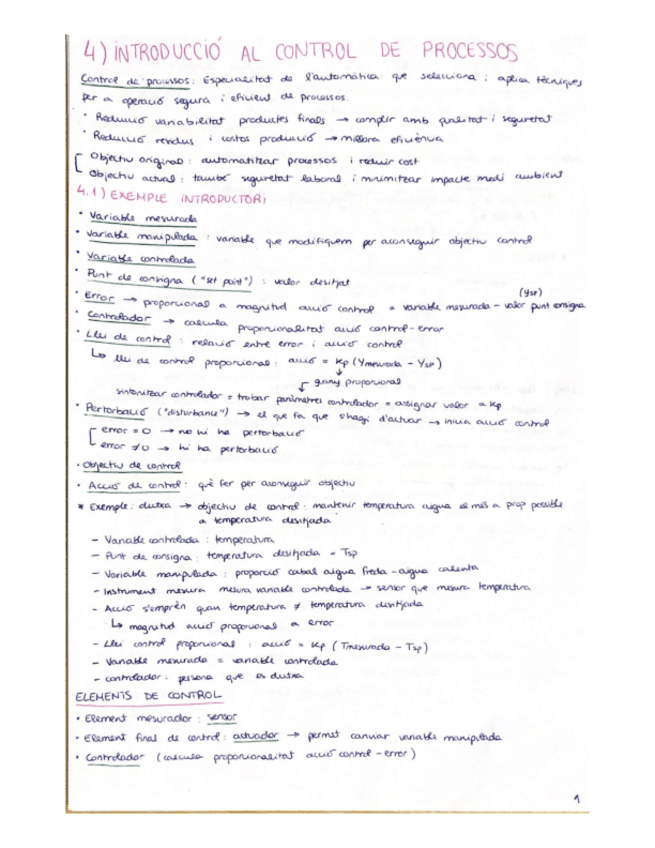 4) INTRODUCCIÓ AL CONTROL DE PROCESSOS
Control de processos: Especialitat de l'automàtica que selecciona i aplica tècniques
per a operació segura i eficient de processos.
· Reducció variabilitat productes finals → complir amb qualitat i seguretat
· Reducció residus i costos producció → millora eficiència
[ Objectiu original: automatitzar processos i reduir cost
Objectiu actual: també seguretat laboral i minimitzar impacte medi ambient
4.1) EXEMPLE INTRODUCTORI
· Variable mesurada
· Variable manipulada: variable que modifiquem per aconseguir objectiu control
· Variable controlada
· Punt de consigna ("set point"): valor desitjat
· Error → proporcional a magnitud acció control = variable mesurada - valor punt consigna (ysp)
· Controlador → calcula proporcionalitat acció control-error
· Llei de control: relació entre error i acció control
↳ llei de control proporcional: acció = Kp (Ymesurada - Ysp)
↓
guany proporcional
sintonitzar controlador = trobar paràmetres controlador = assignar valor a Kp
· Pertorbació ("disturbance") → el que fa que s'hagi d'actuar → inicia acció control
[ error = 0 → no hi ha pertorbació
error ≠ 0 → hi ha pertorbació
· Objectiu de control
· Acció de control: què fer per aconseguir objectiu
* Exemple: dutxa → objectiu de control: mantenir temperatura aigua el més a prop possible
a temperatura desitjada
- Variable controlada: temperatura
- Punt de consigna: temperatura desitjada = Tsp
- Variable manipulada: proporció cabal aigua freda-aigua calenta
- Instrument mesura mesura variable controlada → sensor que mesura temperatura
- Acció s'emprèn quan temperatura ≠ temperatura desitjada
↳ magnitud acció proporcional a error
- Llei control proporcional: acció = Kp (Tmesurada - Tsp)
- Variable mesurada = variable controlada
- controlador: persona que es dutxa
ELEMENTS DE CONTROL
· Element mesurador: sensor
· Element final de control: actuador → permet canviar variable manipulada
· Controlador (calcula proporcionalitat acció control-error)
1